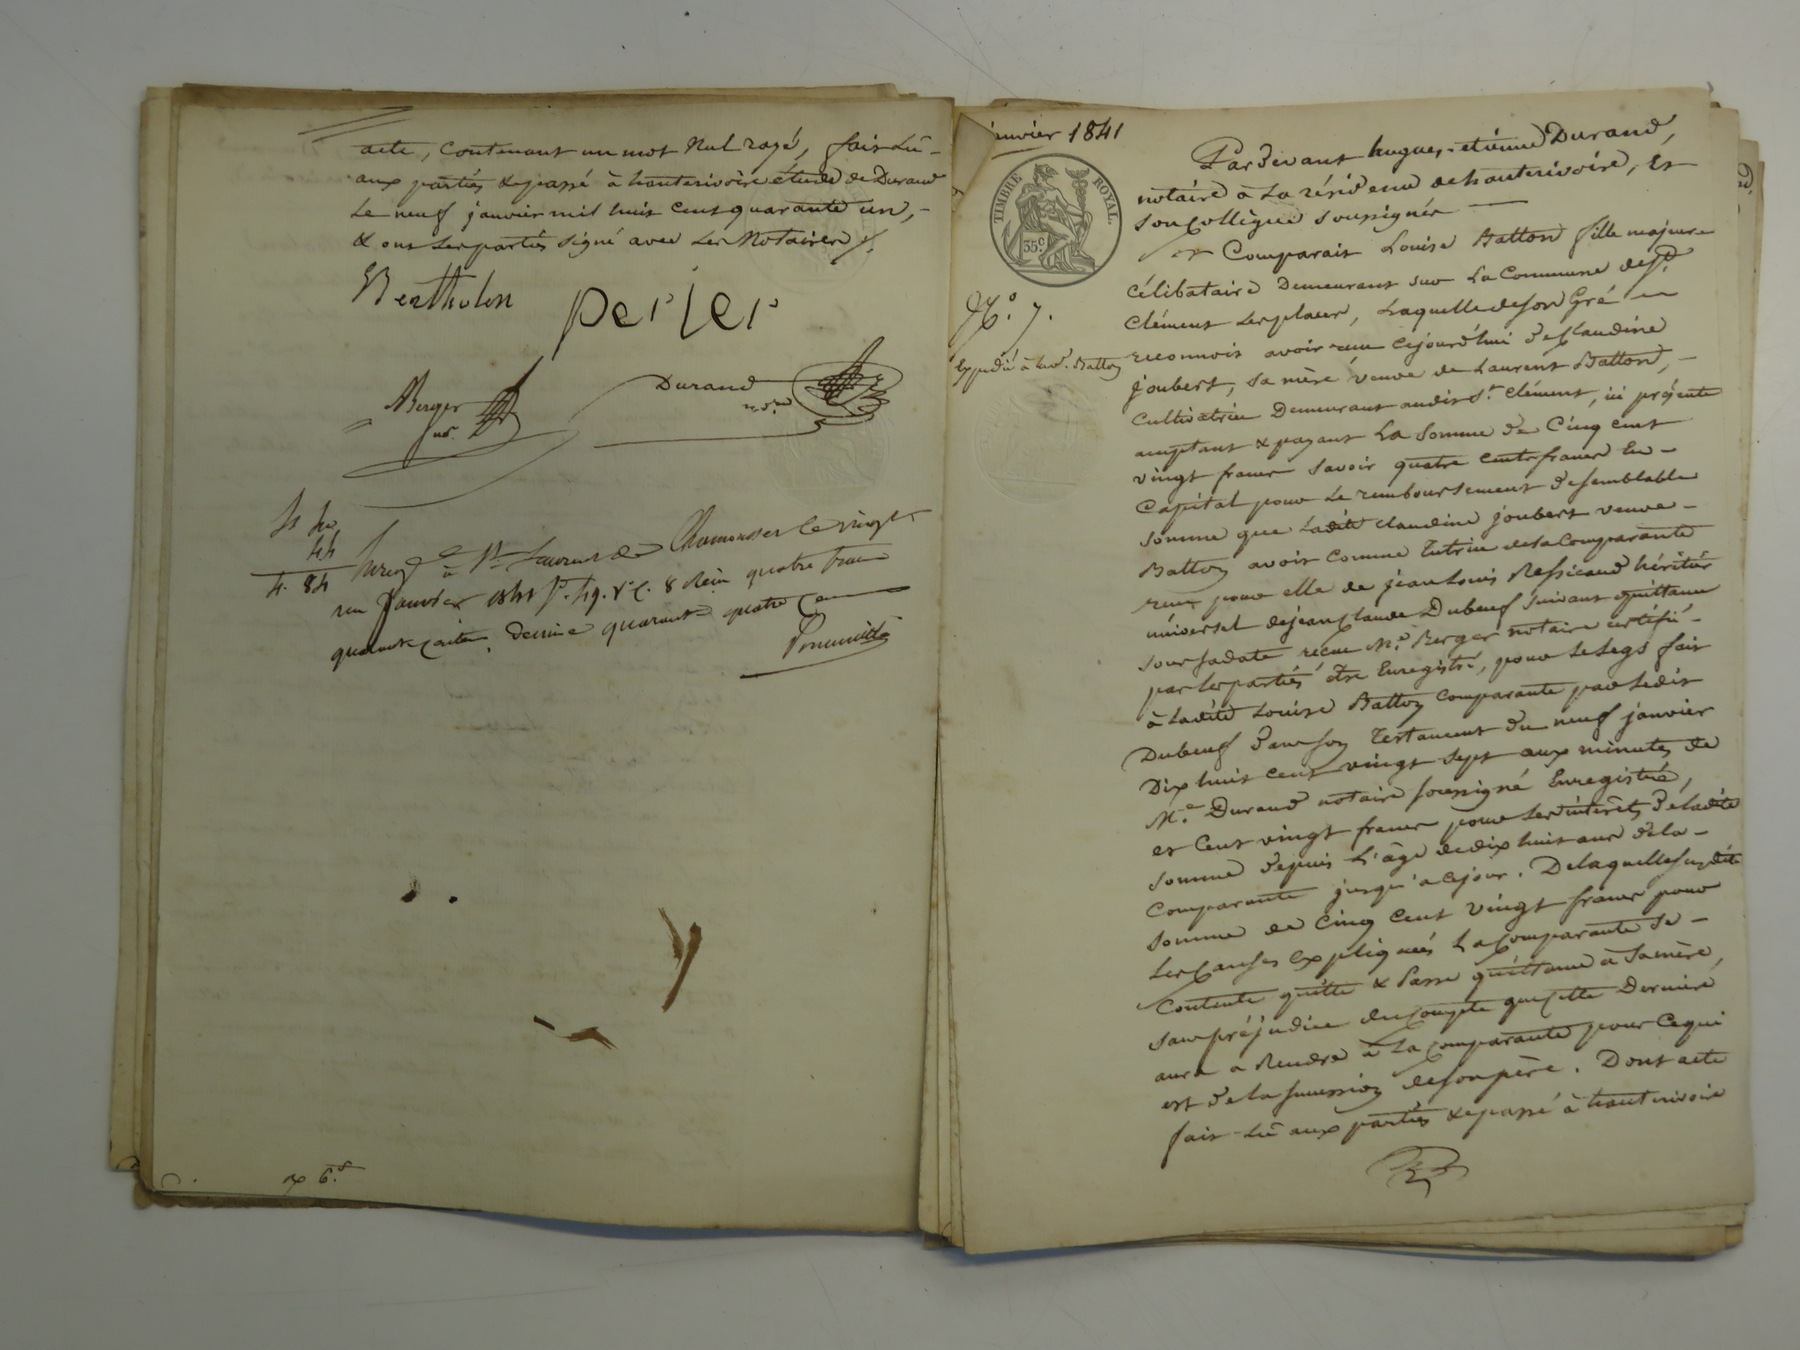 acte, contenant un mot nul rayé, fait Lû -
aux partiés & passé à hauterivoire étude de Durand
Le neuf janvier mil huit cent quarante un, -
& ont Les partiés signé avec Les Notaires /.
Bertholon
perier
Berger
nre.
Durand
4 40
44
4. 84
Enreg à St Laurent de Chamousset le vingt
un Janvier 1841 fo. 49. Vo C. 8 Reçu quatre francs
quarante centimes, decime quarante quatre centimes
6.
janvier 1841
TIMBRE ROYAL.
35c
No. 7.
Expedié à Batton
Pardevant hugues-etiénne Durand,
notairé à La résidence de hauterivoire, Et
son Collégue soussignés
Comparait Louise Batton fille majeure
Célibatairé Demeurant sur La Commune de St.
Clément Les places, Laquelle de son Gré
reconnoit avoir reçu cejourd'hui de Claudine
joubert, sa mère veuve de Laurent Batton, -
Cultivatrice Demeurant audit St. Clément, ici présente
comptant & payant La Somme de Cinq cent
vingt francs savoir quatre cents francs En -
Capital pour Le remboursement de semblable
somme que Ladite Claudine joubert veuve -
Batton avoit comme Tutrice de la Comparante
reçu pour elle de jean Louis Ressicaud héritier
universel de jean Claude Dubeuf suivant quittance
sous sa date reçue Me. Berger notaire certifié -
par Les partiés être Enregistré, pour Le Legs fait
à Ladite Louise Batton comparante par Ledit
Dubeuf dans son Testament du neuf janvier
Dix huit cent vingt sept aux minutes de
Me. Durand notaire soussigné Enregistré,
et Cent vingt francs pour Les intérêts de Ladite
somme depuis L'âge de dix huit ans de la -
Comparante jusqu'a ce jour. De laquelle susdite
somme de Cinq Cent vingt francs pour
Les Causes Expliquées La Comparante se -
Contente quitte & Passe quittance à Sa mère,
sans préjudice du Compte que cette Derniére
aura a Rendre à La Comparante pour Ce qui
est de la succession de son père. Dont acte
fait Lû aux partiés & passé à hauterivoire